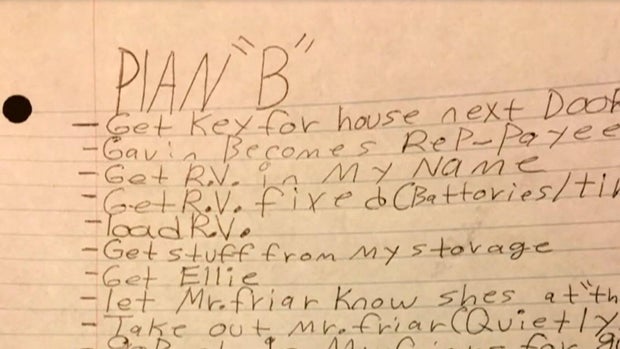 PlAN "B"
- Get Key for house next Door
- Gavin Becomes Rep-Payee
- Get R.V. in My Name
- Get R.V. fixed (Battories/
- load R.V.
- Get stuff from my storage
- Get Ellie
- let Mr.friar Know shes at "th
- Take out Mr.friar (Quietly